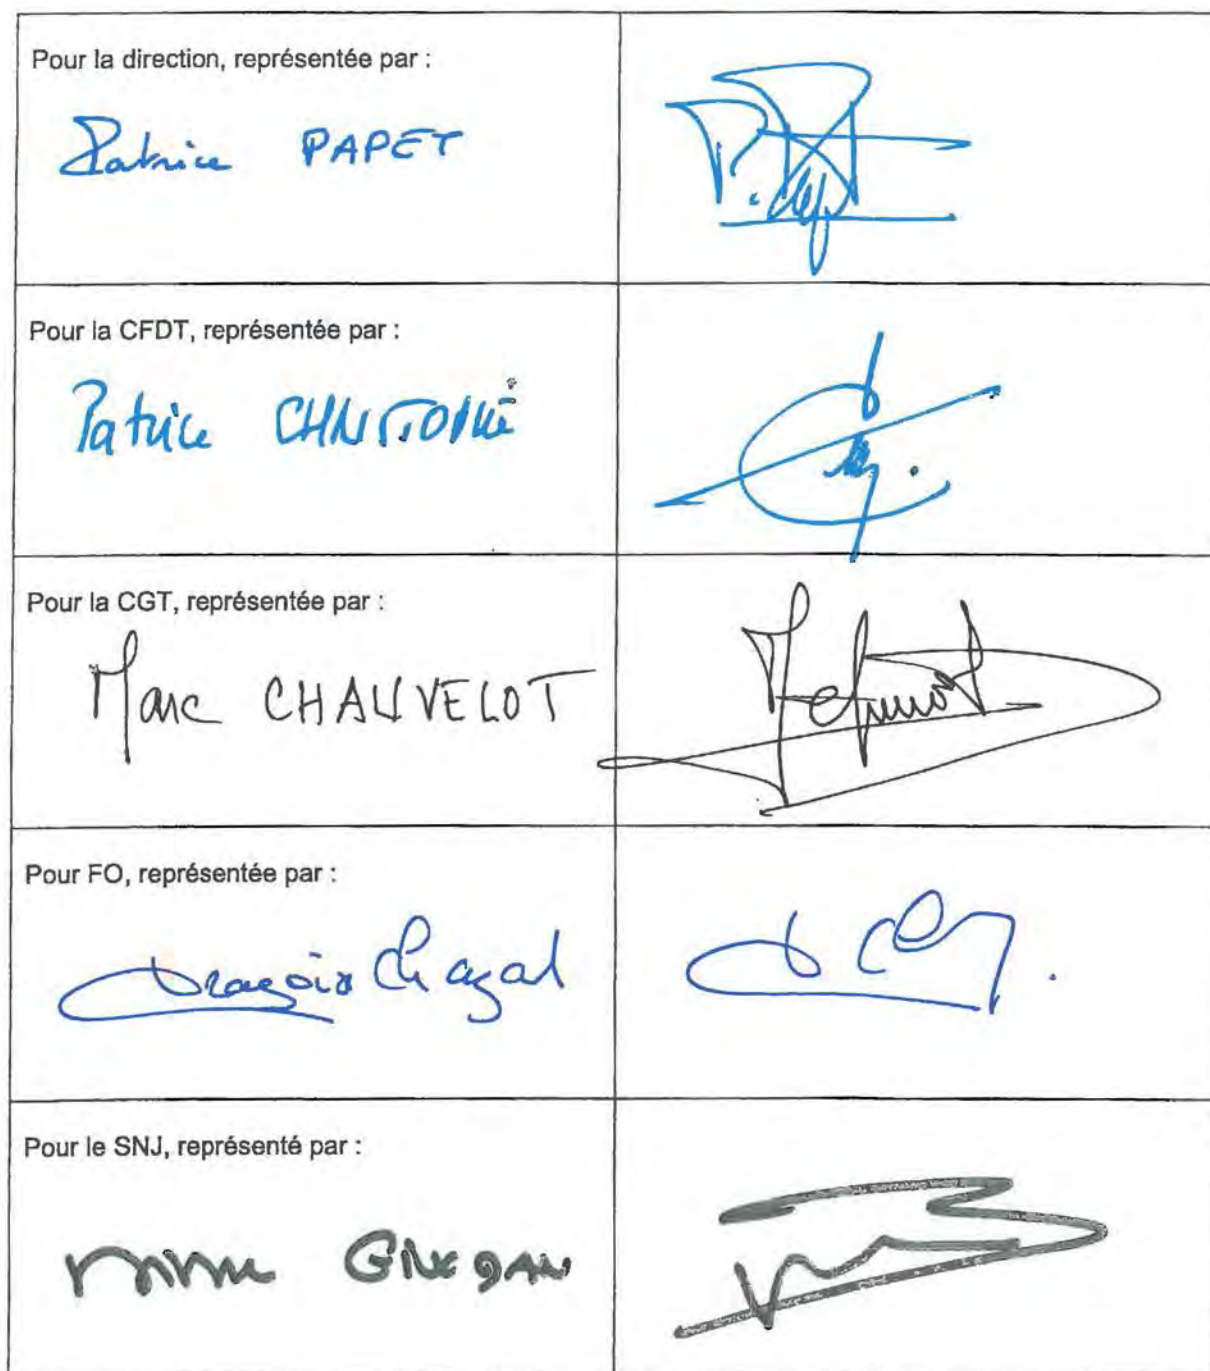 Pour la direction, représentée par :
Patrice PAPET
Pour la CFDT, représentée par :
Patrice CHRISTOPHE
Pour la CGT, représentée par :
Marc CHAUVELOT
Pour FO, représentée par :
François Chazal
Pour le SNJ, représenté par :